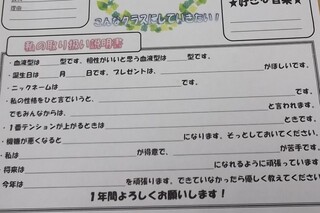 理由
こんなクラスにしていきたい！
★好きな音楽★
私の取り扱い説明書
・血液型は　　型です。相性がいいと思う血液型は　　型です。
・誕生日は　　月　　日です。プレゼントは、　　がほしいです。
・ニックネームは　　です。
・私の性格をひと言でいうと、　　
でもみんなからは、　　と言われます。
・1番テンションが上がるときは　　ときです。
・機嫌が悪くなると　　になります。そっとしておいてください。
・私は　　が得意で、　　が苦手です。
・将来は　　になれるように頑張っています
・今年は　　を頑張ります、できていなかったら優しく教えてください。
1年間よろしくお願いします！